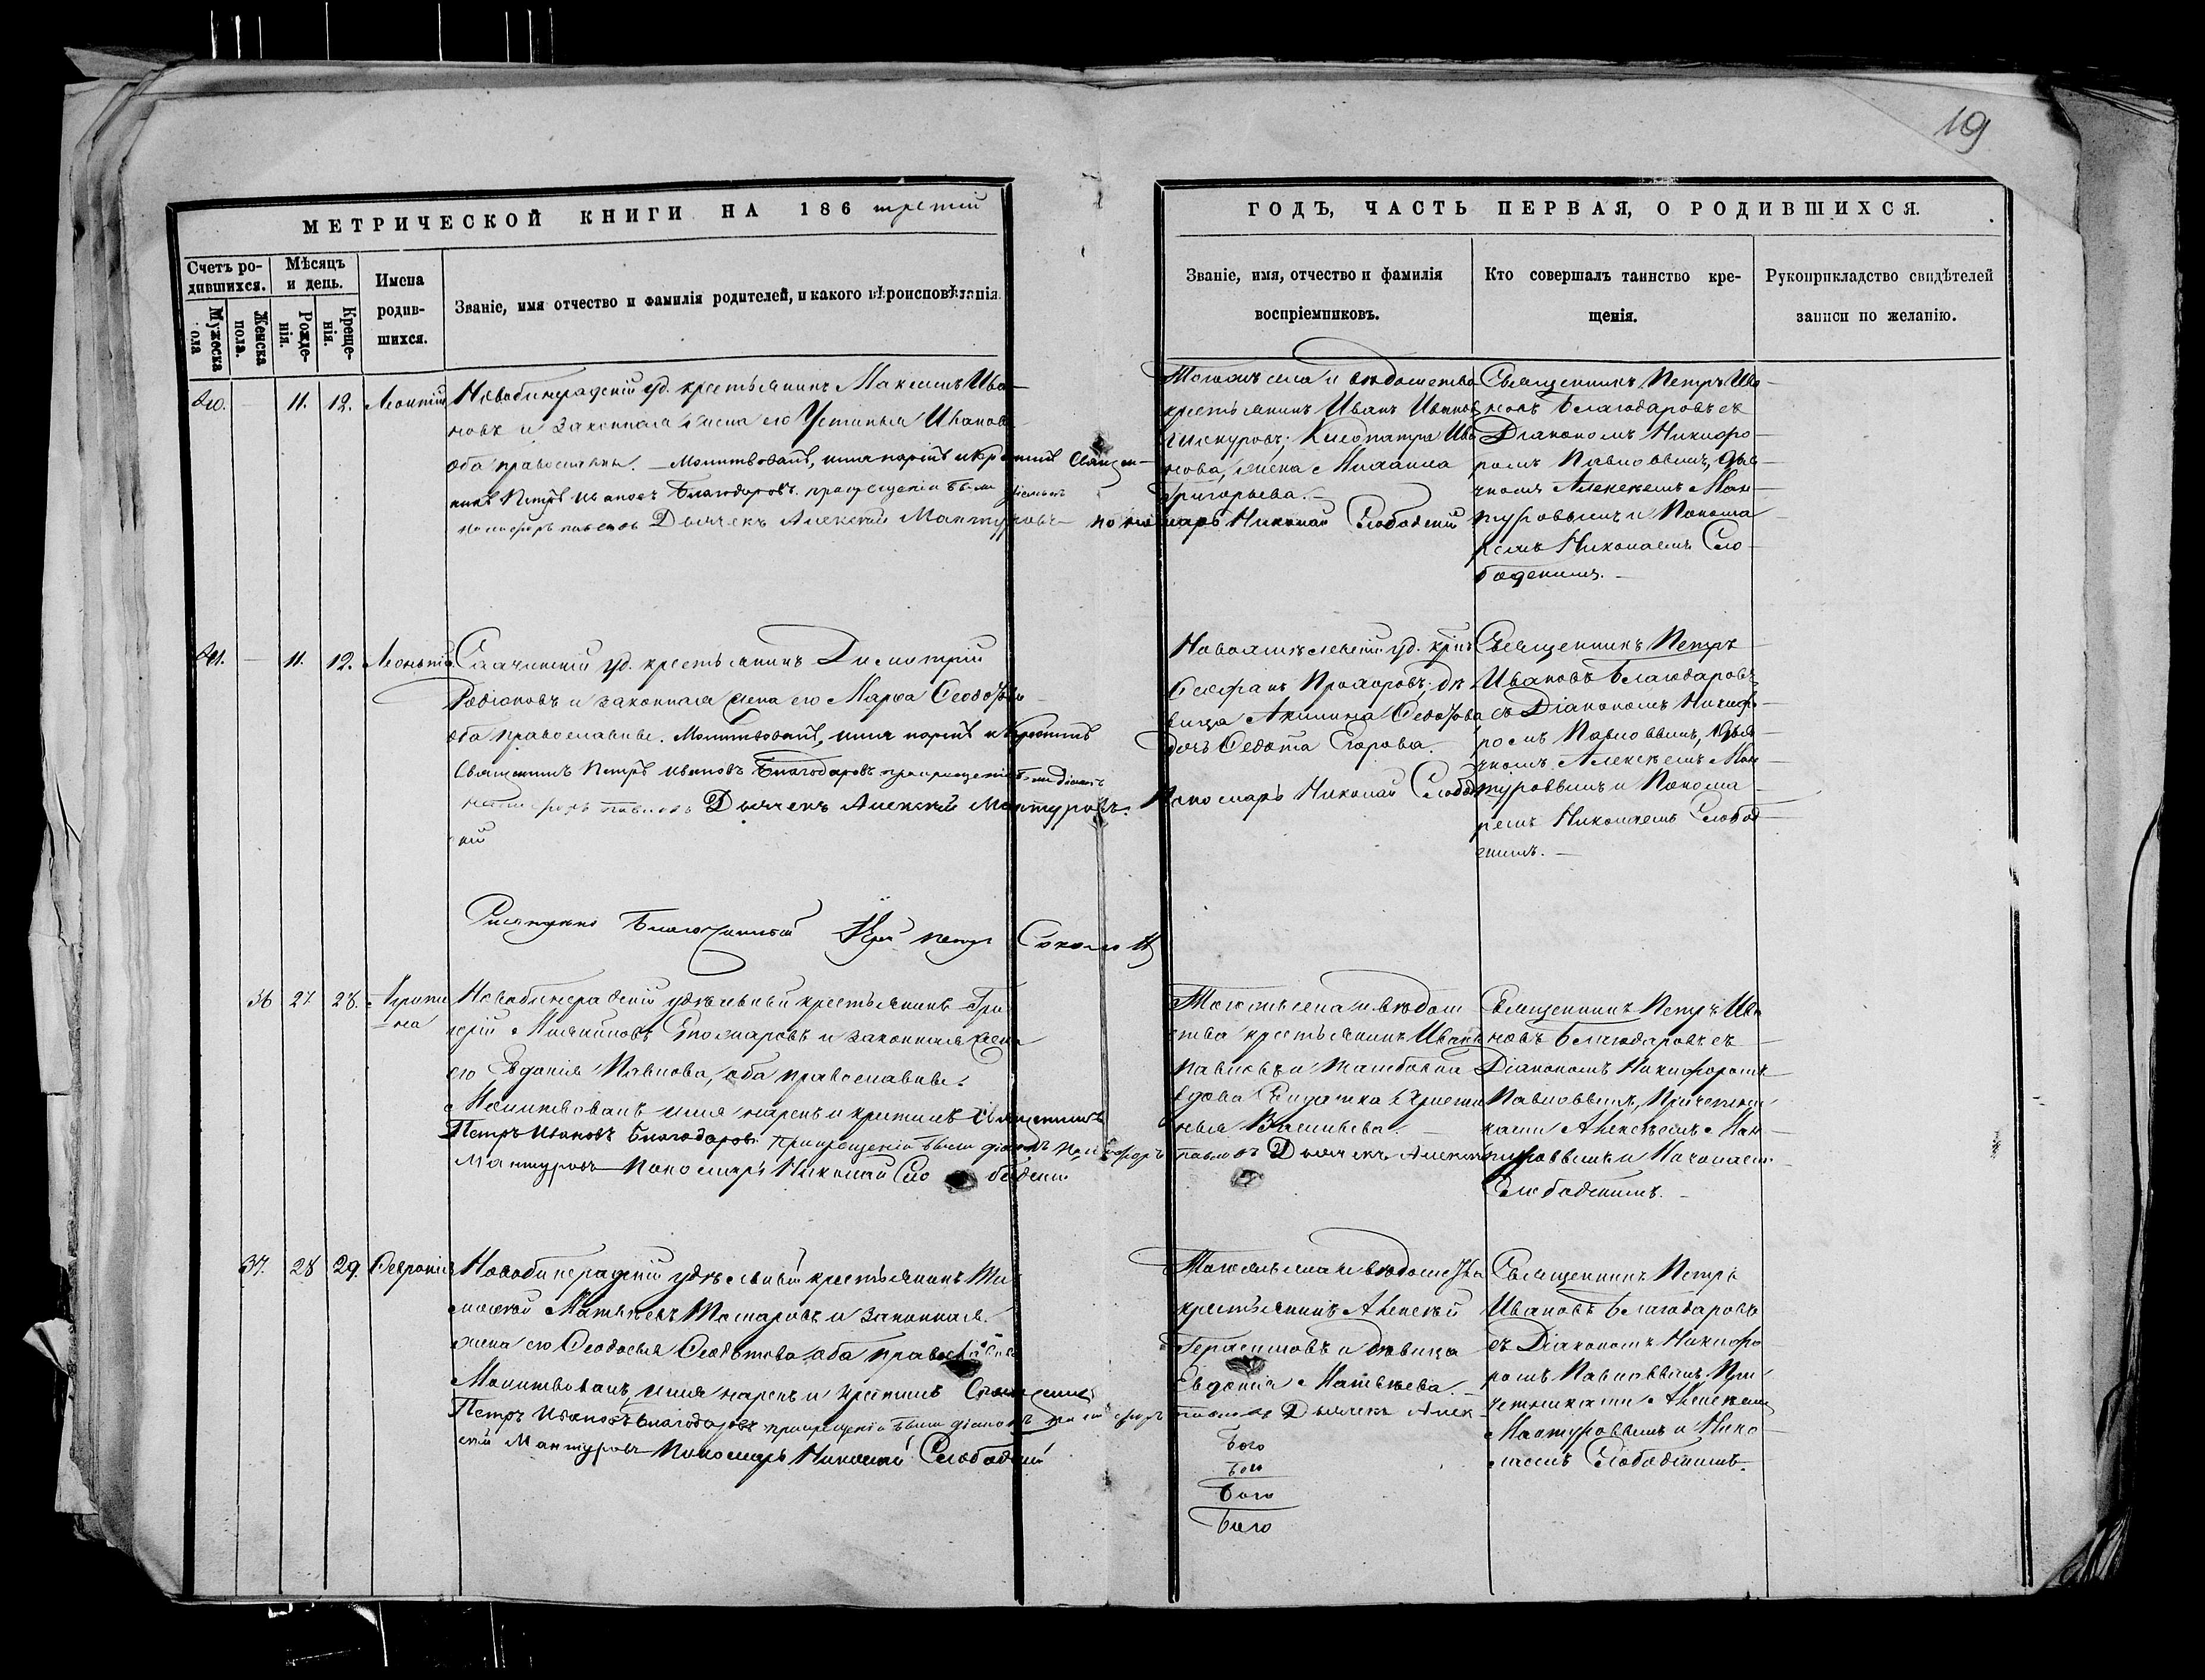 19
МЕТРИЧЕСКОЙ КНИГИ НА 186 третій
ГОДЪ, ЧАСТЬ ПЕРВАЯ, О РОДИВШИХСЯ.
Счетъ ро-
дившихся.
Мужеска
пола
Женска
пола.
Мѣсяцъ
и день.
Рожде-
нія.
Креще-
нія.
Имена
родив-
шихся.
Званіе, имя отчество и фамилія родителей, и какого вѣроисповѣданія.
Званіе, имя, отчество и фамилія
воспріемниковъ.
Кто совершалъ таинство кре-
щенія.
Рукоприкладство свидѣтелей
записи по желанію.
11. 12. Леонтій
уд. крестьянинъ Максимъ Ива-
новъ и законная жена его Устинья Иванова
оба православны. Молитвовалъ, имя нарекъ и крестилъ Священ-
никъ Петръ Ивановъ Благодаровъ при крещеніи были діаконъ
Дьячекъ Алексій Мантуровъ пономарь Николай Слободскій
Тогожъ села и вѣдомства
крестьянинъ Иванъ Ивановъ
Ива-
нова, жена Михаила
Григорьева.
Священникъ Петръ Ива-
новъ Благодаровъ съ
Діакономъ Никифо-
ромъ Павловымъ, Дья-
чкомъ Алексѣемъ Ман-
туровымъ и Понома-
ремъ Николаемъ Сло-
бодскимъ.
11. 12. Леонтій
уд. крестьянинъ Димитрій
Родіоновъ и законная жена его Марфа Ѳеодорова
оба православные. Молитвовалъ, имя нарекъ и крестилъ
Священникъ Петръ Ивановъ Благодаровъ при крещеніи были діаконъ
Никифоръ Павловъ Дьячекъ Алексій Мантуровъ. Пономарь Николай Слобод
скій
уд. крест.
Стефанъ Прохоровъ; дѣ-
вица Акилина Ѳедотова
дочь Ѳедота Егорова.
Священникъ Петръ
Ивановъ Благодаровъ
съ Діакономъ Никифо-
ромъ Павловымъ, Дья-
чкомъ Алексѣемъ Ман-
туровымъ и Понома-
ремъ Николаемъ Слобод-
скимъ.
Благочинный Іерей Петръ
36 27. 28. Агрипи
на
удѣльный крестьянинъ Гри
горій и законная жена
его Евдокія Павлова, оба православные.
Молитвовалъ имя нарекъ и крестилъ Священникъ
Петръ Ивановъ Благодаровъ при крещеніи были діаконъ Никифоръ Павловъ Дьячекъ Алексій
Мантуровъ Пономарь Николай Слободскій
Тогожъ села и вѣдом
ства крестьянинъ Иванъ
Павловъ и
вдова
Васильева.
Священникъ Петръ Ива
новъ Благодаровъ съ
Діакономъ Никифоромъ
Павловымъ, Причетни
ками Алексѣемъ Ман-
туровымъ и Николаемъ
Слободскимъ.
37. 28 29. Ѳевронія
удѣльный крестьянинъ Ти
моѳей Матвѣевъ и законная
жена его Ѳеодосья Ѳедотова оба православные
Молитвовалъ, имя нарекъ и крестилъ Священникъ
Петръ Ивановъ Благодаровъ при крещеніи были діаконъ Никифоръ Павловъ Дьячекъ Алек
сѣй Мантуровъ Пономарь Николай Слободскій
Тогожъ села и вѣдомства
крестьянинъ Алексѣй
Герасимовъ и дѣвица
Евдокія Матвѣева.
Священникъ Петръ
Ивановъ Благодаровъ
съ Діакономъ Никифо
ромъ Павловымъ, При
четниками Алексѣемъ
Мантуровымъ и Нико
лаемъ Слободскимъ.